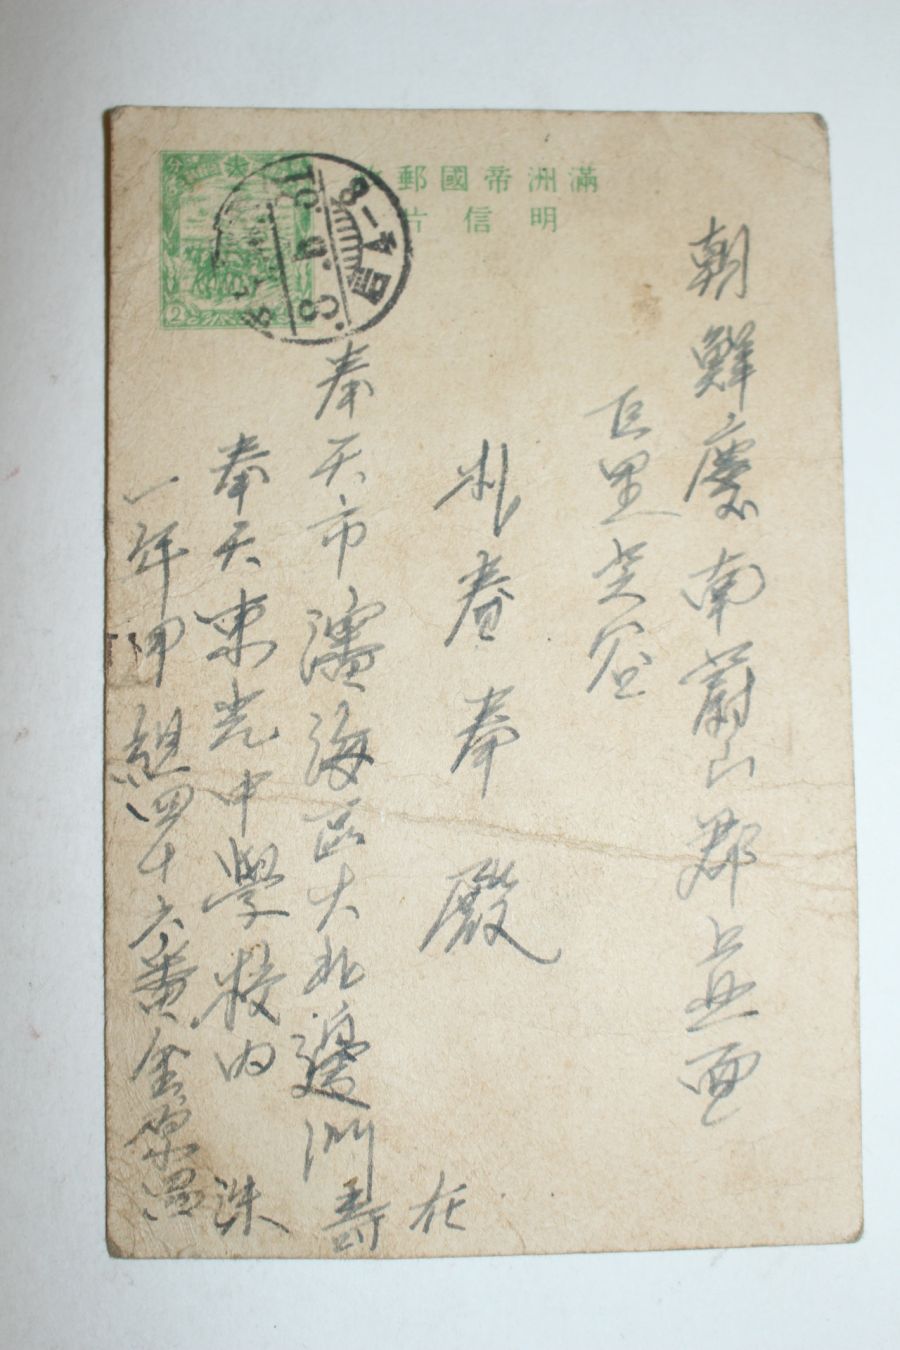 滿洲帝國郵
明信片
朝鮮慶南蔚山郡上北面
巨里芝谷
朴春奉 殿
奉天市瀋海區大北邊門
奉天東光中學校內
一年甲組四十六番金原
在
壽
洙
2
分